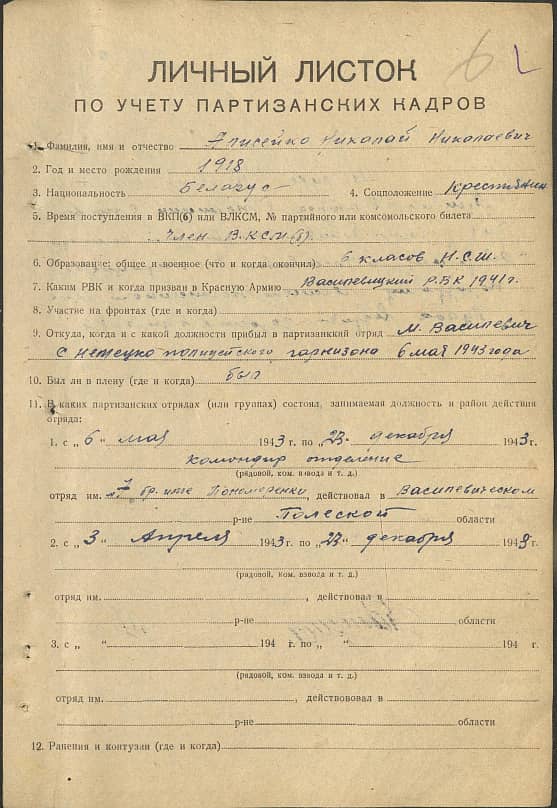 6
ЛИЧНЫЙ ЛИСТОК
ПО УЧЕТУ ПАРТИЗАНСКИХ КАДРОВ
1. Фамилия, имя и отчество Алисейко Николай Николаевич
2. Год и место рождения 1918
3. Национальность Беларус 4. Соцположение Крестьянин
5. Время поступления в ВКП(б) или ВЛКСМ, № партийного или комсомольского билета
член В.К.С.М(б).
6. Образование: общее и военное (что и когда окончил) 6 класов Н.С.Ш.
7. Каким РВК и когда призван в Красную Армию Василевицкий Р.В.К 1941 г.
8. Участие на фронтах (где и когда)
9. Откуда, когда и с какой должности прибыл в партизанкий отряд М. Василевич
с немецко полицейского гарнизона 6 мая 1943 года
10. Был ли в плену (где и когда) был
11. В каких партизанских отрядах (или группах) состоял, занимаемая должность и район действия
отряда:
1. с „ 6 " мая 1943 г. по „ 23 " декабря 1943 г.
командир отделение
(рядовой, ком. взвода и т. д.)
отряд им. бр. име Пономаренки, действовал в Василевическом
р-не Полеской области
2. с „ 3 " Апреля 1943 г. по „ 23 " декабря 1943 г.
(рядовой, ком. взвода и т. д.)
отряд им. , действовал в
р-не области
3. с „ " 194 г. по „ " 194 г.
(рядовой, ком. взвода и т. д.)
отряд им. , действововал в
р-не области
12. Ранения и контузии (где и когда)